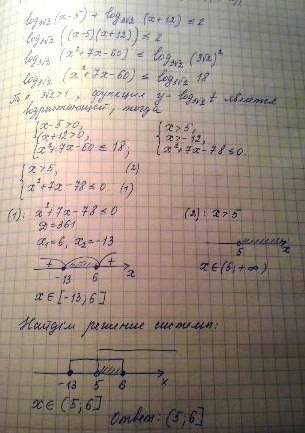 log₃√₂(x-5) + log₃√₂(x+12) ≤ 2
log₃√₂((x-5)(x+12)) ≤ 2
log₃√₂(x²+7x-60) ≤ log₃√₂(3√2)²
log₃√₂(x²+7x-60) ≤ log₃√₂18
Т.к. 3√2>1, функция y=log₃√₂t является
возрастающей, тогда
{x-5>0, {x>5,
x+12>0, x>-12,
x²+7x-60≤18; x²+7x-78≤0.
{x>5, (2)
x²+7x-78≤0 (1)
(1): x²+7x-78≤0 (2): x>5
D=361
x₁=6, x₂=-13
+ - + x 5 x
-13 6 x∈(5;+∞)
x∈[-13;6]
Найдём решение системы:
-13 5 6 x
x∈(5;6]
Ответ: (5;6]